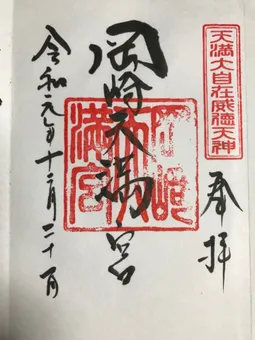 天満大自在威徳天神
奉拝
岡崎天満宮
岡崎天満宮
令和元年十二月二十一日